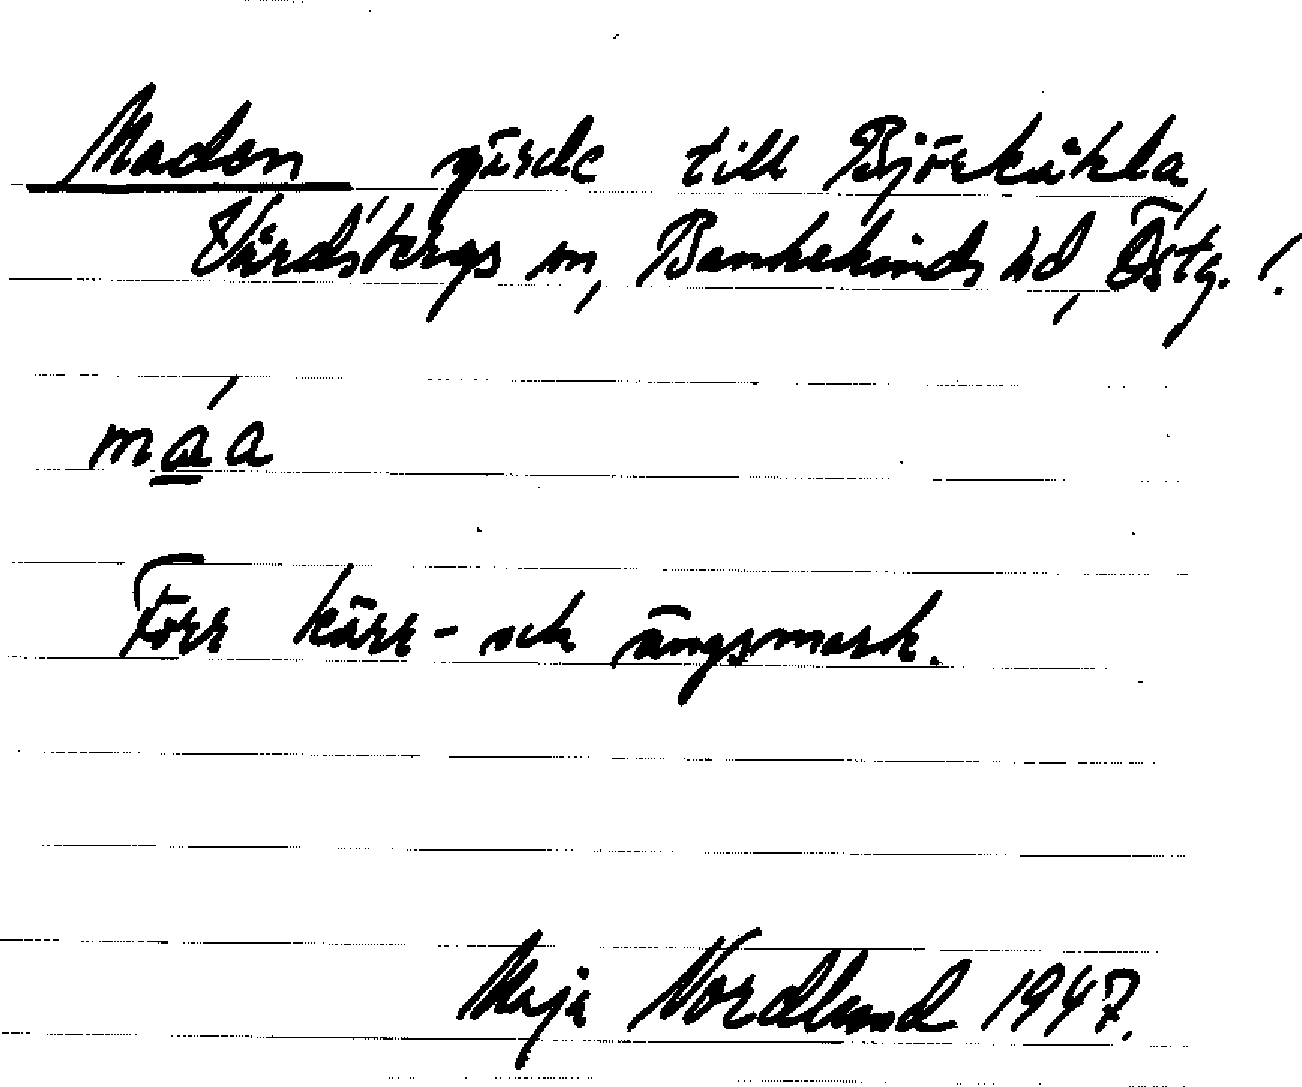 Maden gärde till Björkåkla,
Vårdsbergs sn, Bankekinds hd, Östg. l.
máa
Förr kärr- och ängsmark.
Maja Nordlund 1947.